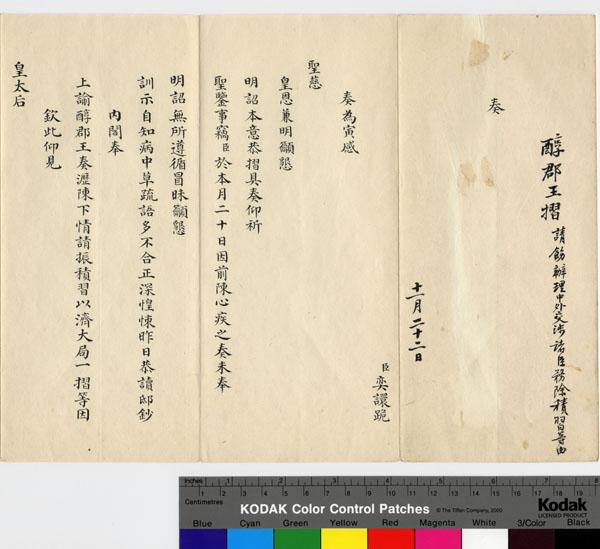 醇郡王摺 請飭辦理中外交涉諸臣務除積習等由
奏
十一月二十二日
臣奕譞跪
奏為寅感
聖慈
皇恩兼明籲懇
明詔本意恭摺具奏仰祈
聖鑒事竊臣於本月二十日因前陳心疾之奏未奉
明詔無所遵循冒昧籲懇
訓示自知病中草疏語多不合正深惶悚昨日恭讀邸鈔
內閣奉
上諭醇郡王奏瀝陳下情請振積習以濟大局一摺等因
欽此仰見
皇太后
Inches 1 2 3 4 5 6 7 8
Centimetres 1 2 3 4 5 6 7 8 9 10 11 12 13 14 15 16 17 18 19
KODAK Color Control Patches © The Tiffen Company, 2000
Kodak
LICENSED PRODUCT
Blue Cyan Green Yellow Red Magenta White 3/Color Black